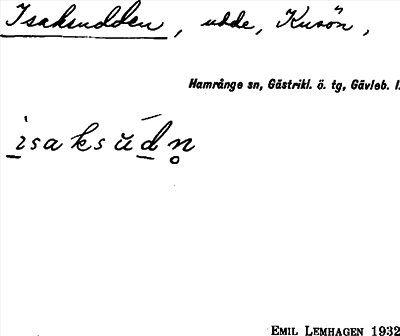 Isaksudden, udde, Kusön,
Hamrånge sn, Gästrikl. ö. tg, Gävleb. l.
i̱saksŭ́ḏn̥
EMIL LEMHAGEN 1932